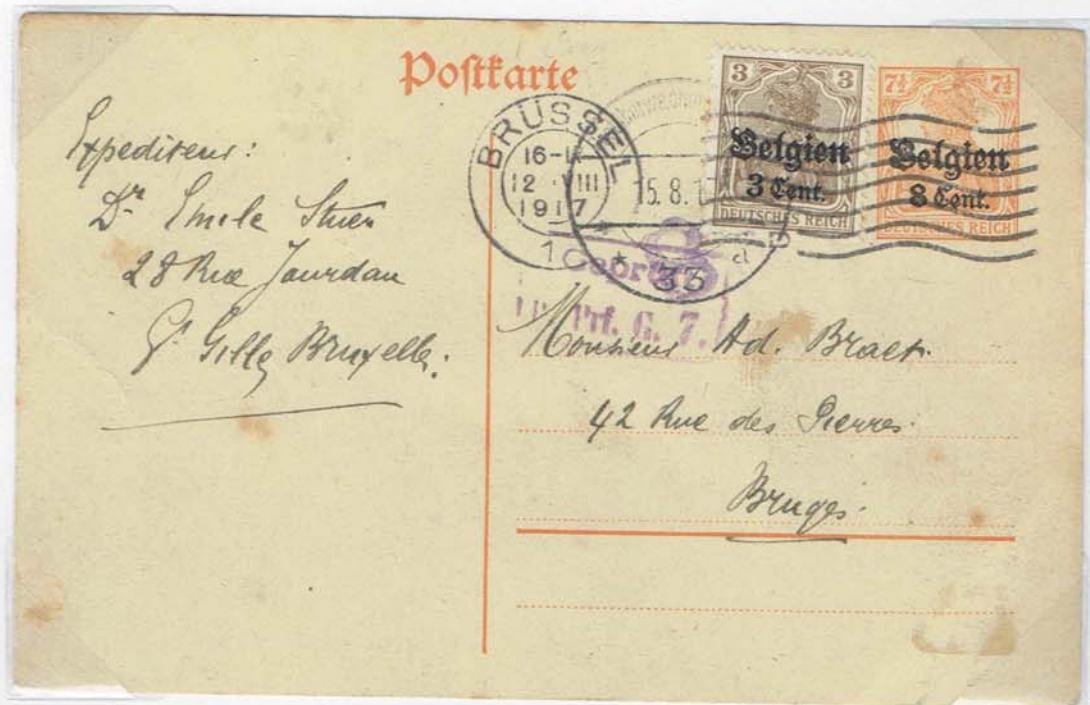 Postkarte
Expediteur:
Dr Emile
28 Rue Jourdan
St Gilles Bruxelles.
BRÜSSEL
16-
12 VIII
1917
1
15.8.1
* 33 a
3 3
Belgien
3 Cent.
DEUTSCHES REICH
7½ 7½
Belgien
8 Cent.
DEUTSCHES REICH
Geprüft
Prf. G. 7.
Monsieur Ad. Braet.
42 Rue des Pierres.
Bruges.